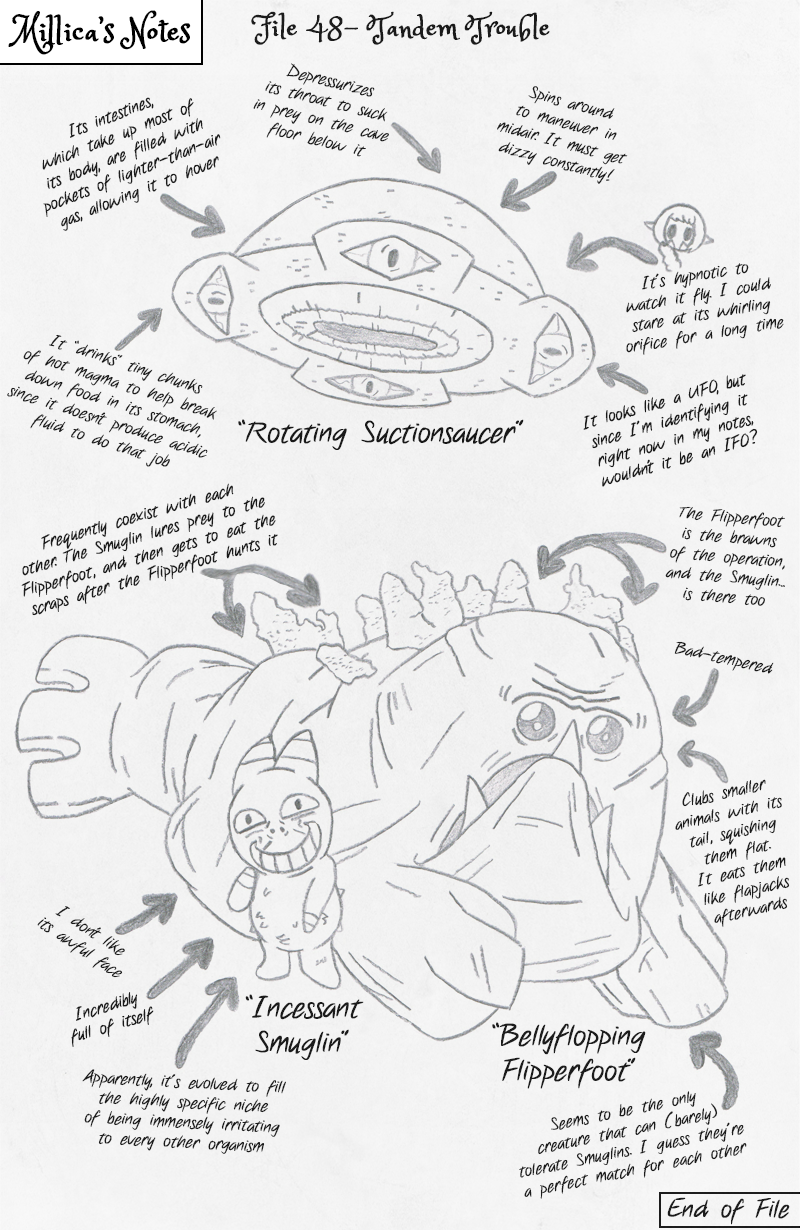 Millica's Notes
File 48- Tandem Trouble
Its intestines,
which take up most of
its body, are filled with
pockets of lighter-than-air
gas, allowing it to hover
Depressurizes
its throat to suck
in prey on the cave
floor below it
Spins around
to maneuver in
midair. It must get
dizzy constantly!
It's hypnotic to
watch it fly. I could
stare at its whirling
orifice for a long time
It "drinks" tiny chunks
of hot magma to help break
down food in its stomach,
since it doesn't produce acidic
fluid to do that job
It looks like a UFO, but
since I'm identifying it
right now in my notes,
wouldn't it be an IFO?
"Rotating Suctionsaucer"
Frequently coexist with each
other. The Smuglin lures prey to the
Flipperfoot, and then gets to eat the
scraps after the Flipperfoot hunts it
The Flipperfoot
is the brawns
of the operation,
and the Smuglin...
is there too
Bad-tempered
Clubs smaller
animals with its
tail, squishing
them flat.
It eats them
like flapjacks
afterwards
I don't like
its awful face
Incredibly
full of itself
Apparently, it's evolved to fill
the highly specific niche
of being immensely irritating
to every other organism
"Incessant
Smuglin"
"Bellyflopping
Flipperfoot"
Seems to be the only
creature that can (barely)
tolerate Smuglins. I guess they're
a perfect match for each other
End of File